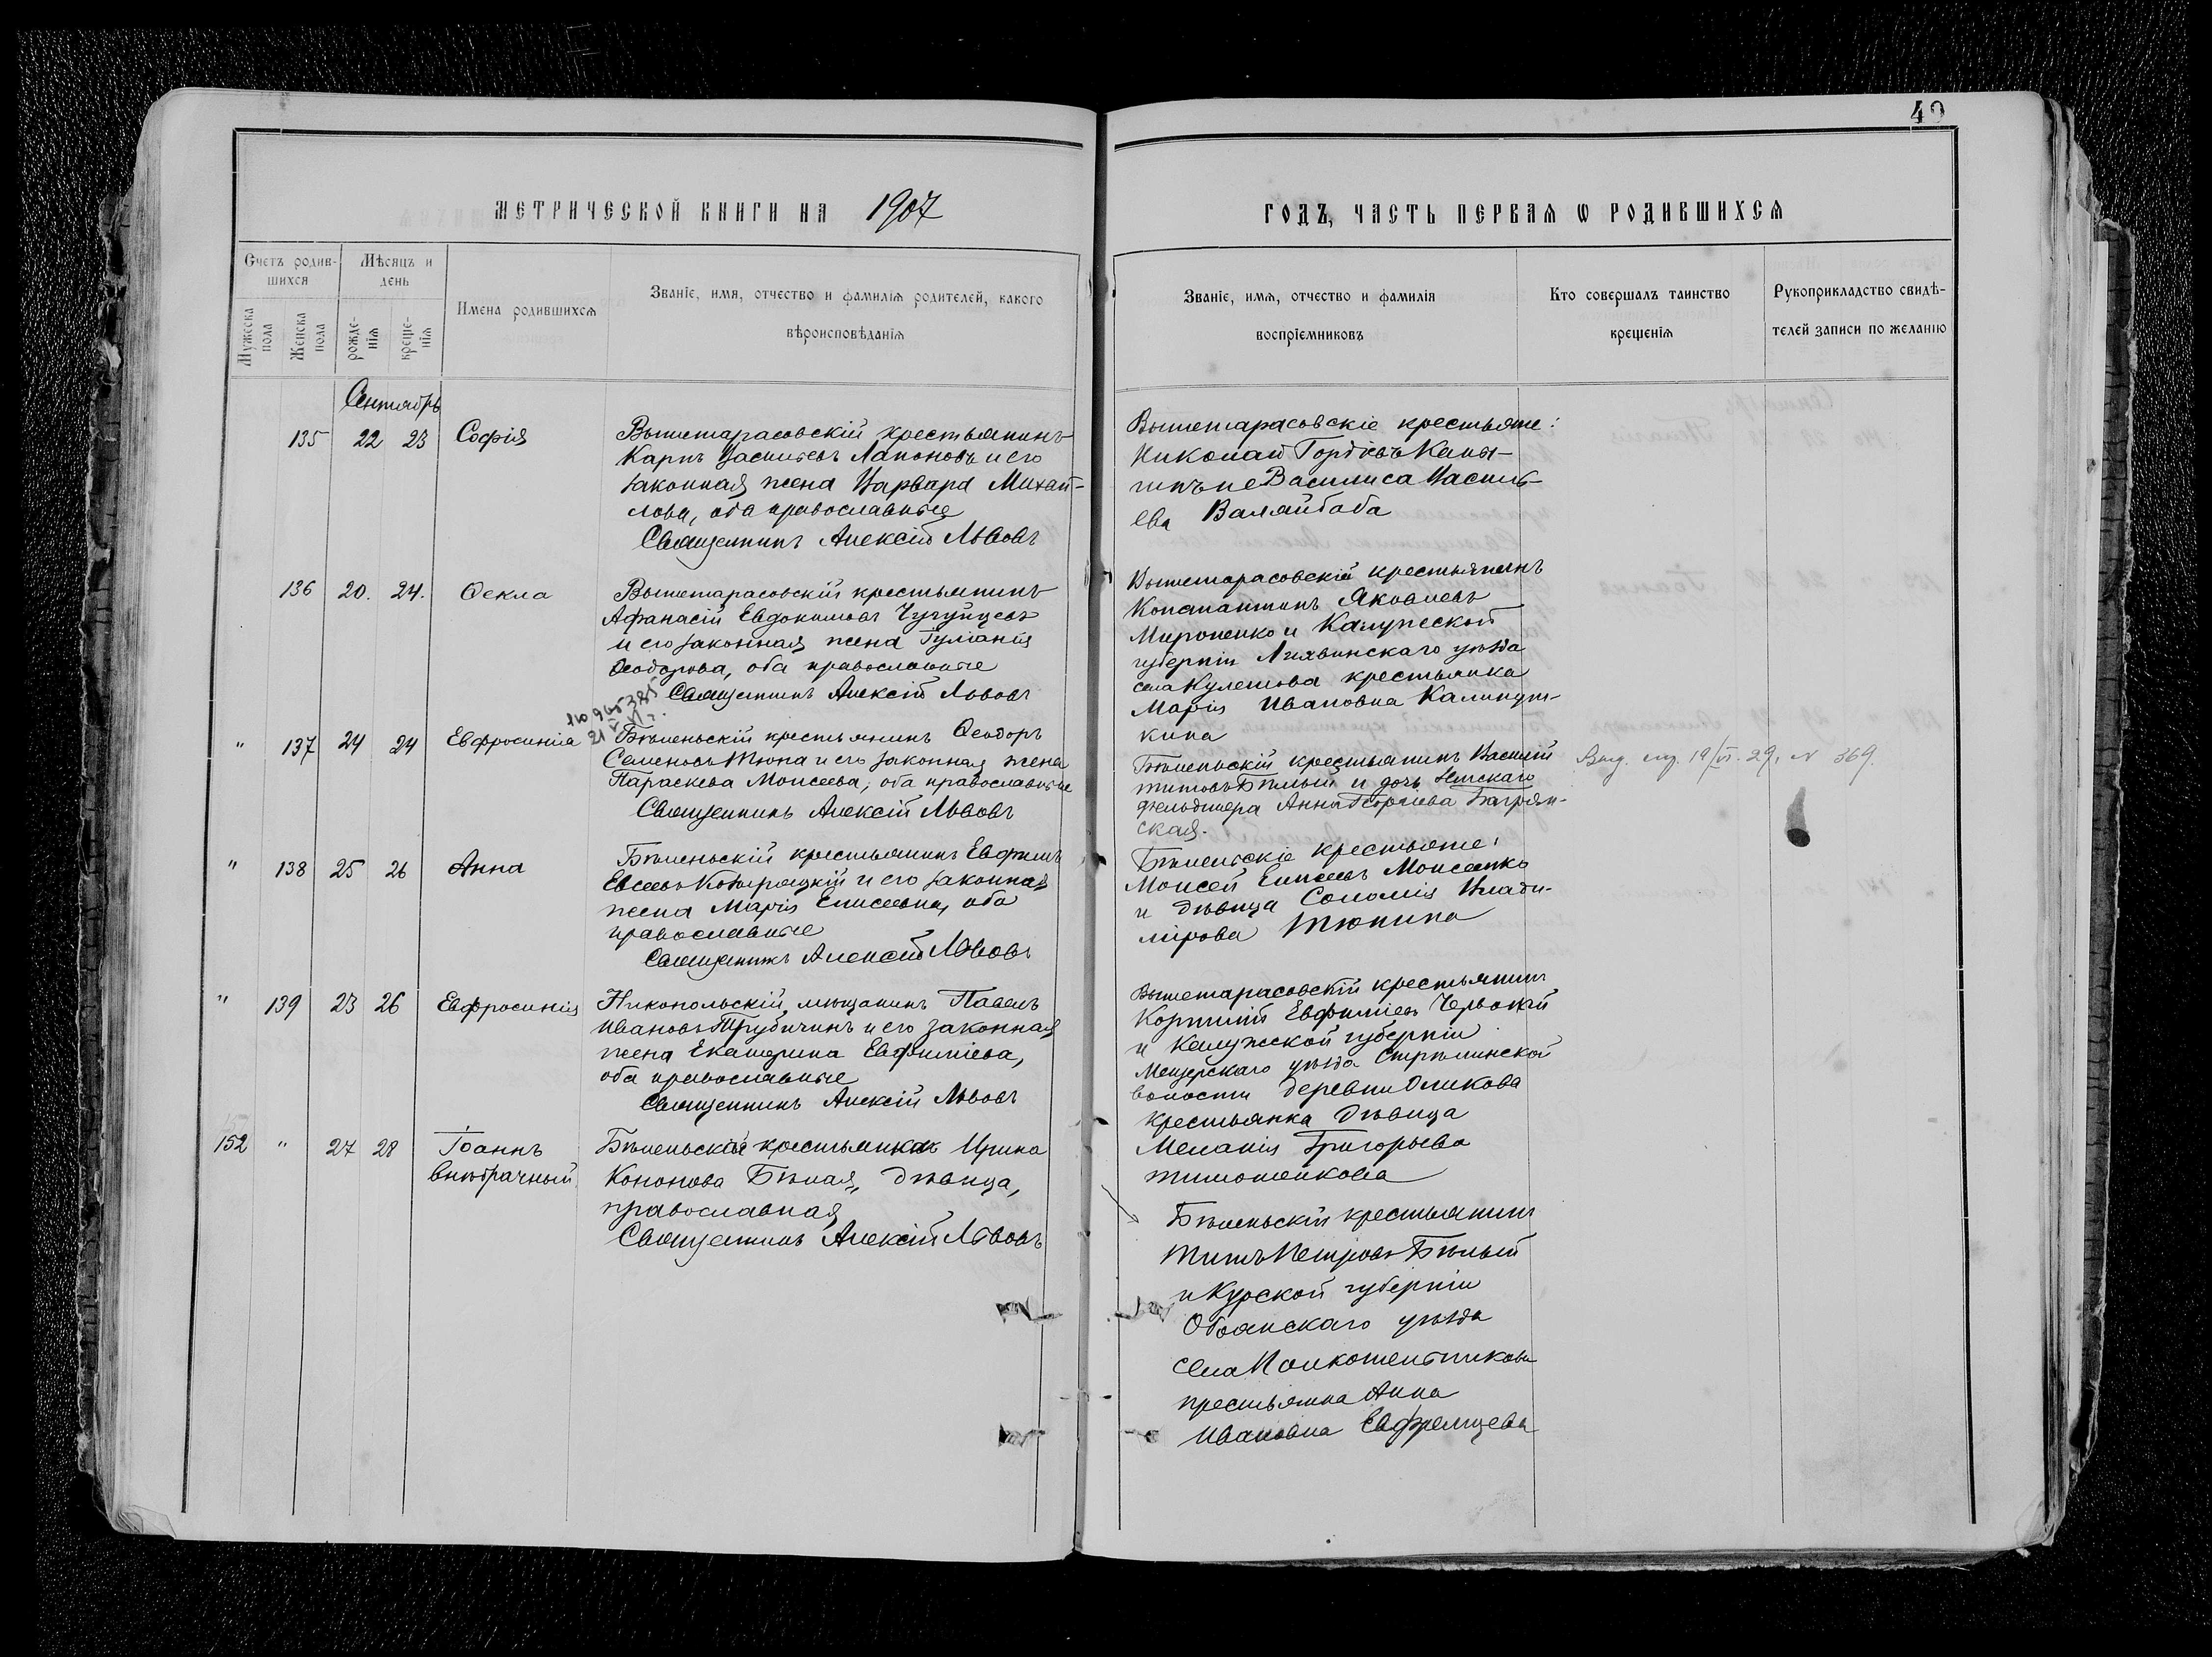 49
МЕТРИЧЕСКОЙ КНИГИ НА 1907
ГОДЪ, ЧАСТЬ ПЕРВАЯ Ѡ РОДИВШИХСЯ
Счетъ родив-
шихся
Мужеска
пола
Женска
пола
Мѣсяцъ и
день
рожде-
нія
креще-
нія
Имена родившихся
Званіе, имя, отчество и фамилія родителей, какого
вѣроисповѣданія
Званіе, имя, отчество и фамилія
воспріемниковъ
Кто совершалъ таинство
крещенія
Рукоприкладство свидѣ-
телей записи по желанію
Сентябрь
135 22 23 Софія
Вышетарасовскій крестьянинъ
Карпъ Васильевъ Лапоновъ и его
законная жена Варвара Михай-
лова, оба православные
Священникъ Алексій Львовъ
Вышетарасовскіе крестьяне:
Николай Гордіевъ
Василиса Василь-
ева Валяйбаба
136 20. 24. Ѳекла
Вышетарасовскій крестьянинъ
Афанасій Евдокимовъ Чугунцевъ
и его законная жена Гуліанія
Ѳеодорова, оба православные
Священникъ Алексій Львовъ
Вышетарасовскій крестьянинъ
Константинъ Яковлевъ
Мироненко и Калужской
губерніи уѣзда
села Кулешова крестьянка
Марія Ивановна Калинут-
кина
" 137 24 24 Евфросинія
Бѣленьскій крестьянинъ Ѳеодоръ
Семеновъ Тюпа и его законная жена
Параскева Моисеева, оба православные
Священникъ Алексій Львовъ
Бѣленьскій крестьянинъ Василій
Титовъ Бѣлый и дочь
фельдшера Анна Георгіева Багрян-
ская.
19/VI. 29. N 369.
" 138 25 26 Анна
Бѣленьскій крестьянинъ Евфимъ
Евсеевъ и его законная
жена Марія Елисеевна, оба
православные
Священникъ Алексій Львовъ
Бѣленьскіе крестьяне:
Моисей Елисеевъ Моисеенко
и дѣвица Соломія Влади-
мірова Тюпина
" 139 23 26 Евфросинія
Никопольскій мѣщанинъ Павелъ
Ивановъ Трубичинъ и его законная
жена Екатерина Евфиміева,
оба православные
Священникъ Алексій Львовъ
Вышетарасовскій крестьянинъ
Корнилій Евфиміевъ
и Калужской губерніи
уѣзда
волости деревни
крестьянка дѣвица
Меланія Григорьева
Тимошенкова
152 " 27 28 Іоаннъ
внѣбрачный
Бѣленьская крестьянка Ирина
Кононова Бѣлая, дѣвица,
православная
Священникъ Алексій Львовъ
Бѣленьскій крестьянинъ
Титъ Петровъ Бѣлый
и Курской губерніи
Обоянскаго уѣзда
села
крестьянка Анна
Ивановна Евфремцева